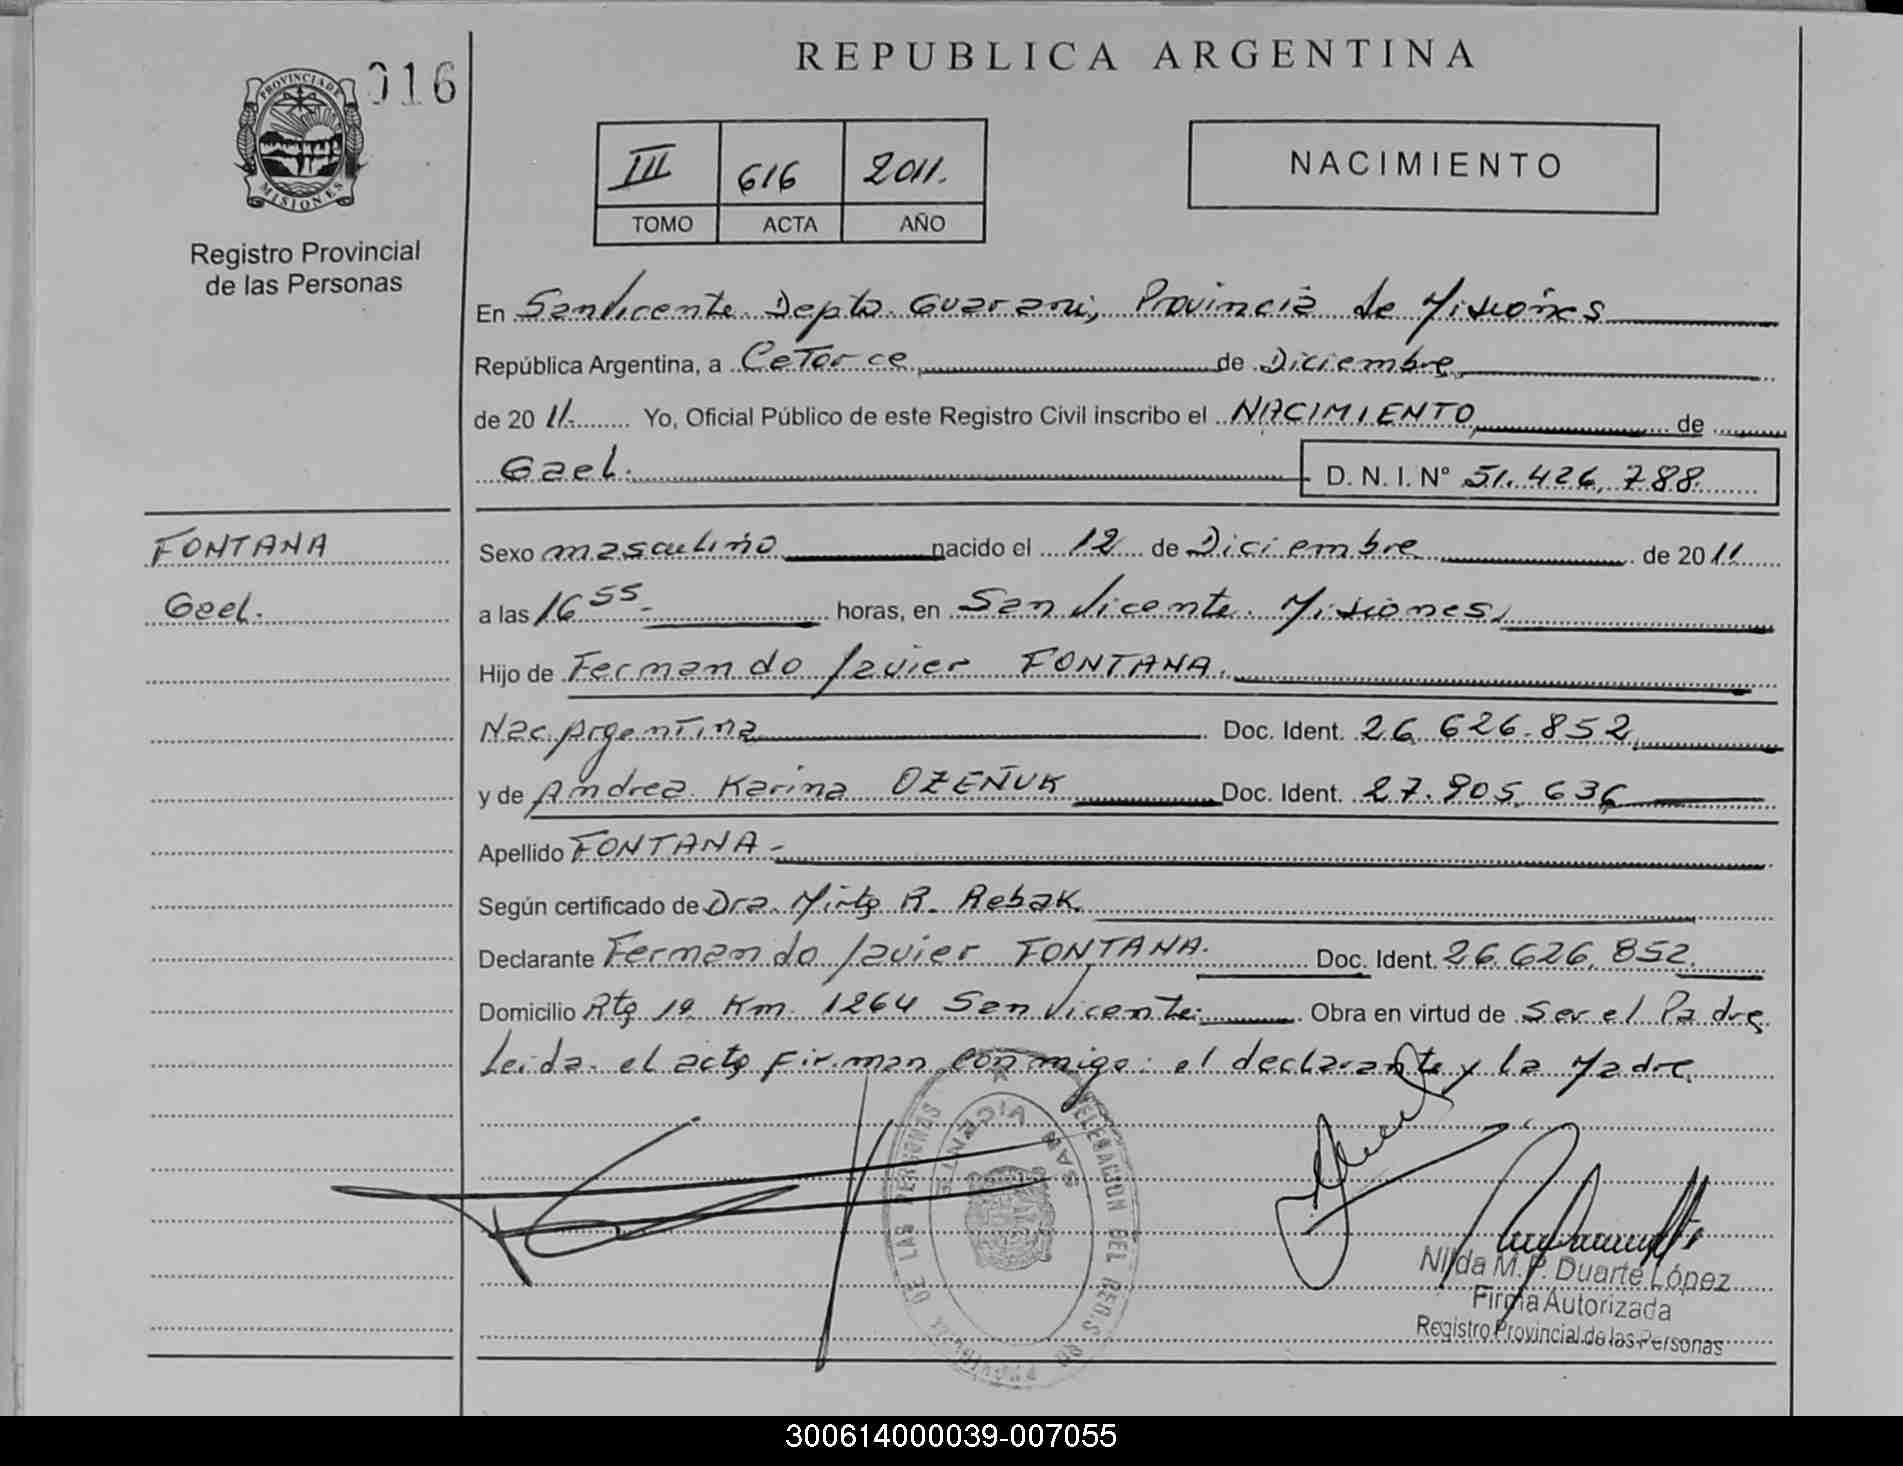 REPUBLICA ARGENTINA
016
PROVINCIA DE MISIONES
Registro Provincial
de las Personas
III 616 2011.
TOMO ACTA AÑO
NACIMIENTO
En San Vicente Depto Guarani, Provincia de Misiones
República Argentina, a Catorce de Diciembre
de 20 11. Yo, Oficial Público de este Registro Civil inscribo el NACIMIENTO de
Gael. D. N. I. Nº 51.426.788.
FONTANA
Gael.
Sexo masculino nacido el 12 de Diciembre de 2011
a las 16 55 horas, en San Vicente. Misiones,
Hijo de Fernando Javier FONTANA.
Nac. Argentina Doc. Ident. 26.626.852
y de Andrea Karina OZEÑUK Doc. Ident. 27.905.636
Apellido FONTANA -
Según certificado de Dra. Mirta R. Rebak.
Declarante Fernando Javier FONTANA. Doc. Ident. 26.626.852.
Domicilio Rta 19 Km 1264 San Vicente. Obra en virtud de Ser el Padre
Leida el acta firman conmigo: el declarante y la Madre.
DELEGACION DEL REG. DE LAS PERSONAS
SAN VICENTE
Nilda M. P. Duarte López
Firma Autorizada
Registro Provincial de las Personas
300614000039-007055